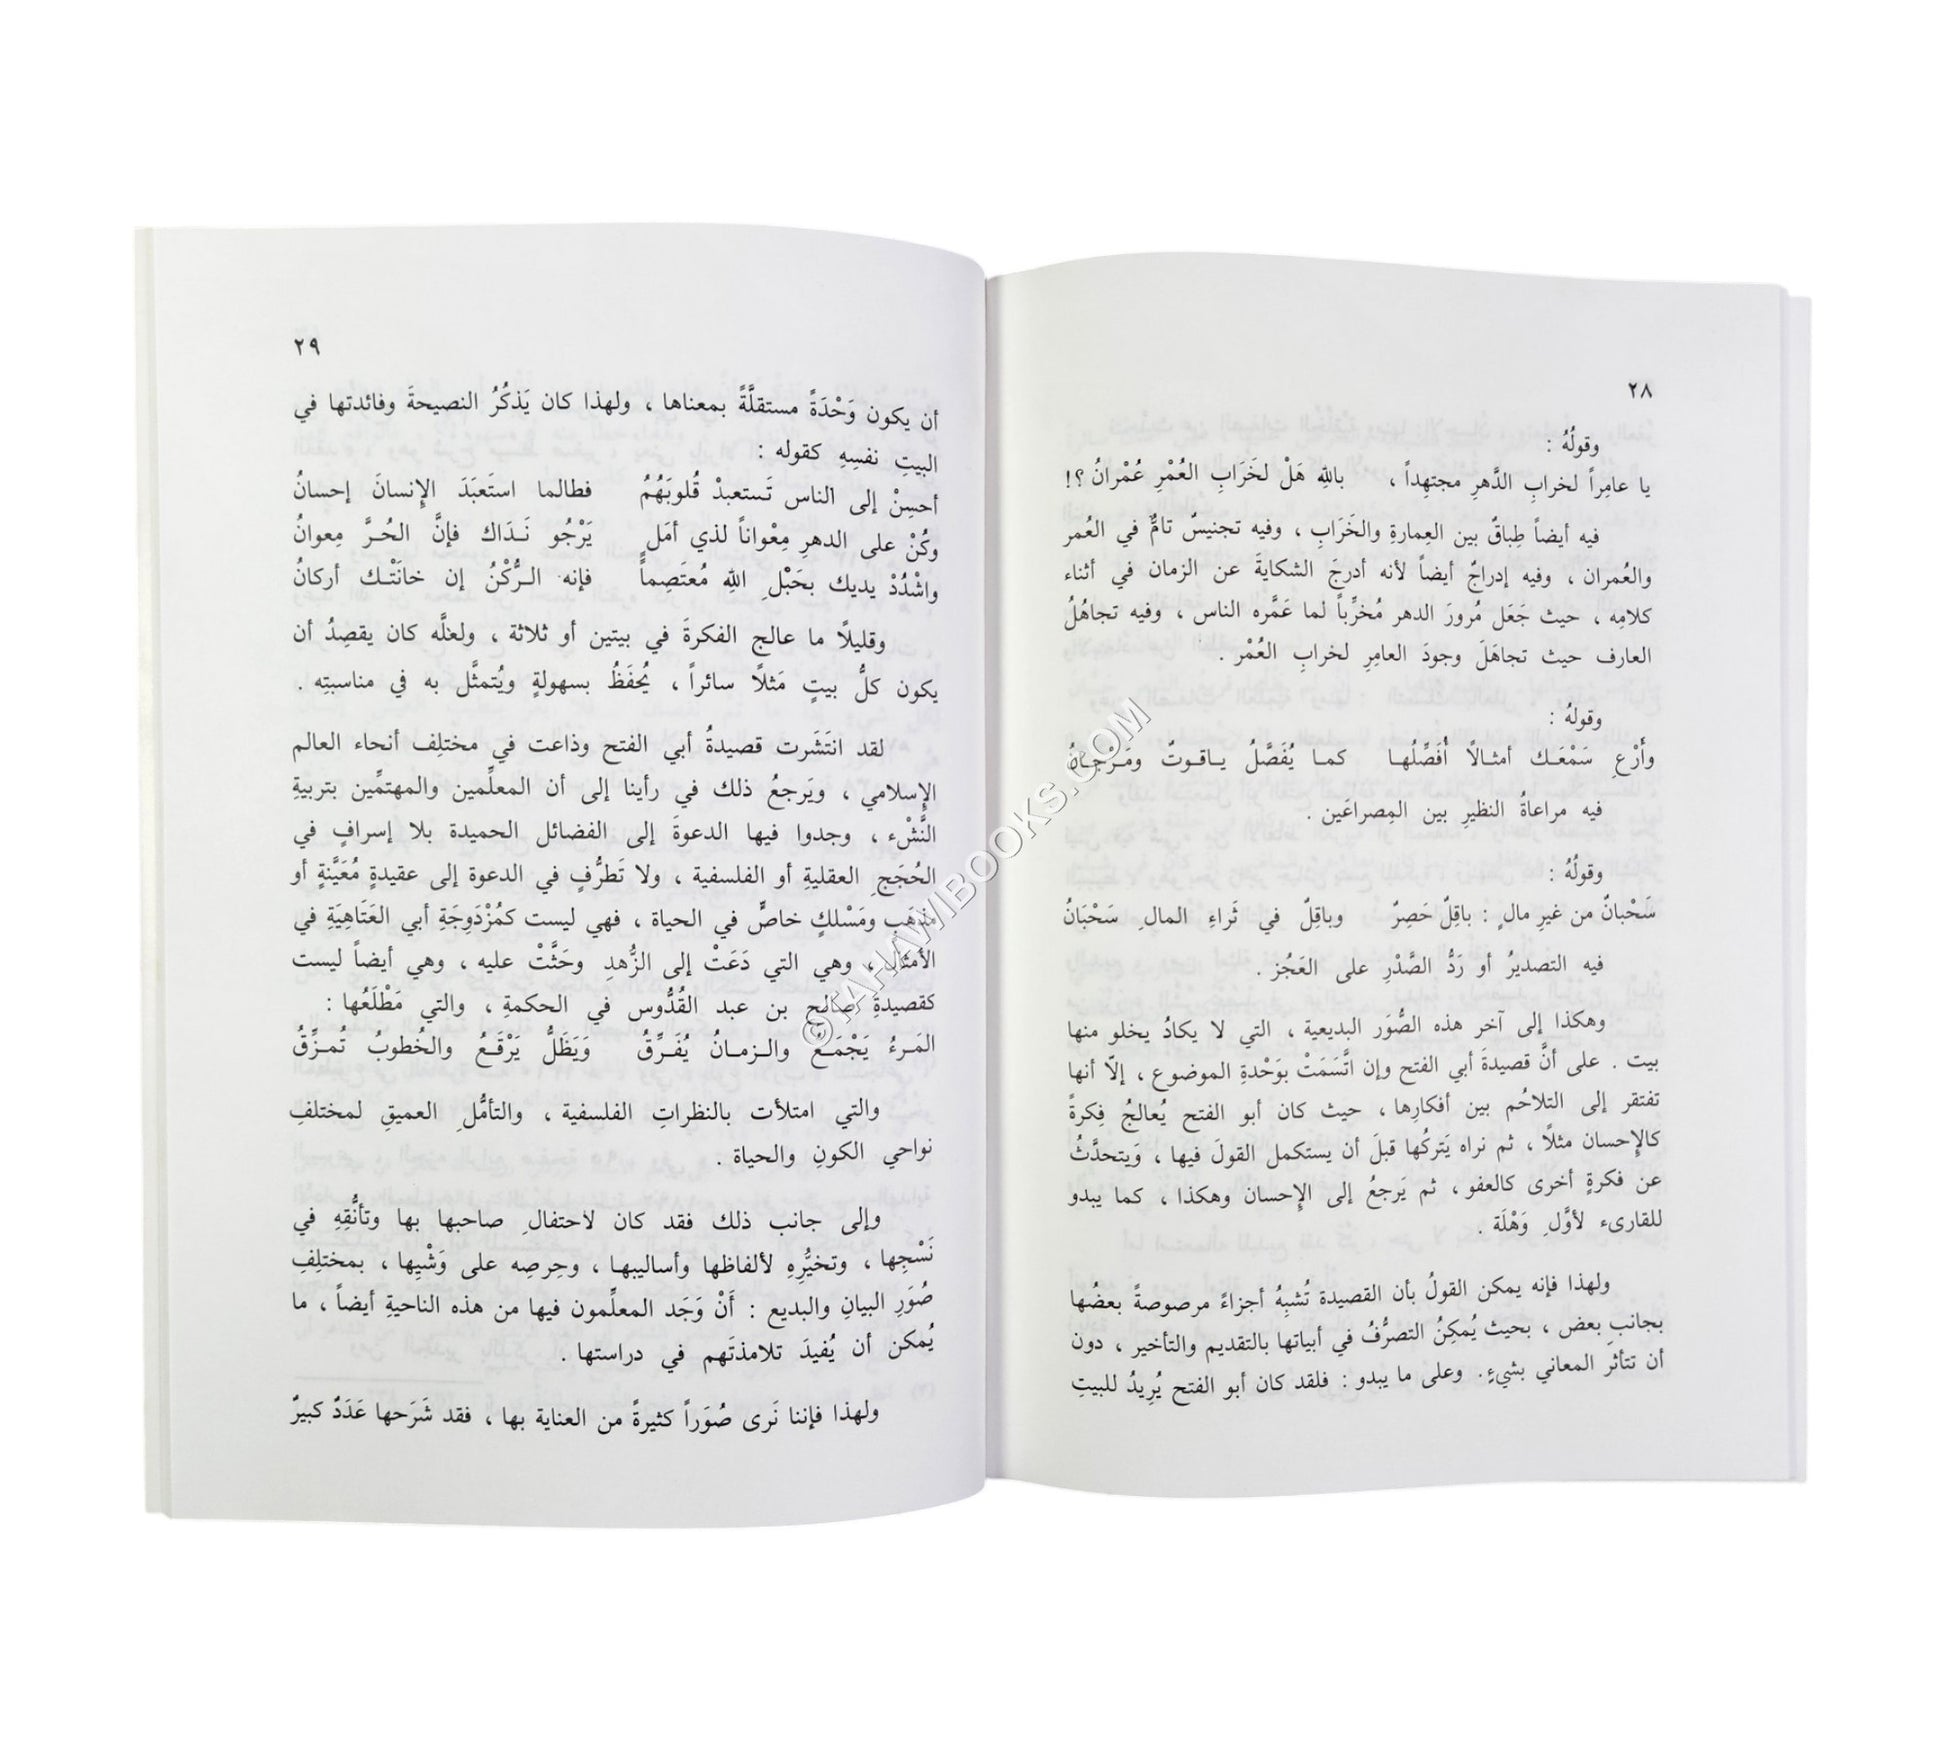 ٢٨
وقولُهُ :
يا عامِراً لخرابِ الدَّهرِ مجتهِداً ، باللهِ هَلْ لخَرَابِ العُمْرِ عُمْرانُ ؟!
فيه أيضاً طِباقٌ بين العِمارةِ والخَرَابِ ، وفيه تجنيسٌ تامٌّ في العُمر
والعُمران ، وفيه إدراجٌ أيضاً لأنه أدرجَ الشكايةَ عن الزمان في أثناء
كلامِه ، حيث جَعَل مُرورَ الدهر مُخرِّباً لما عَمَّره الناس ، وفيه تجاهُلُ
العارف حيث تجاهَلَ وجودَ العامِرِ لخرابِ العُمْر .
وقولهُ :
وأَرْعِ سَمْعَـك أمثـالاً أُفَصِّلُهـا كمـا يُفَصَّلُ يـاقـوتٌ ومَـرْجـانُ
فيه مراعاةُ النظيرِ بين المِصراعَين .
وقولُهُ :
سَحْبانٌ من غيرِ مالٍ : باقِلٌ حَصِرٌ وباقِلٌ في ثَراءِ المالِ سَحْبَانُ
فيه التصديرُ أو رَدُّ الصَّدْرِ على العَجُز .
وهكذا إلى آخر هذه الصُّوَر البديعية ، التي لا يكادُ يخلو منها
بيت . على أنَّ قصيدةَ أبي الفتح وإن اتَّسَمَتْ بوَحْدةِ الموضوع ، إلاّ أنها
تفتقر إلى التلاحُم بين أفكارِها ، حيث كان أبو الفتح يُعالجُ فِكرةً
كالإحسان مثلاً ، ثم نراه يَتركُها قبلَ أن يستكمل القولَ فيها ، وَيتحدَّثُ
عن فكرةٍ أخرى كالعفو ، ثم يَرجعُ إلى الإحسان وهكذا ، كما يبدو
للقارىء لأوَّلِ وَهْلَة .
ولهذا فإنه يمكن القولُ بأن القصيدة تُشبِهُ أجزاءً مرصوصةً بعضُها
بجانبِ بعض ، بحيث يُمكِنُ التصرُّفُ في أبياتها بالتقديم والتأخير ، دون
أن تتأثر المعاني بشيءٍ . وعلى ما يبدو : فلقد كان أبو الفتح يُرِيدُ للبيتِ
٢٩
أن يكون وَحْدَةً مستقلَّةً بمعناها ، ولهذا كان يَذكُرُ النصيحةَ وفائدتها في
البيتِ نفسِهِ كقوله :
أحسِنْ إلى الناس تَستعبدْ قُلوبَهُمُ فطالما استَعبَدَ الإنسانَ إحسانُ
وكُنْ على الدهرِ مِعْواناً لذي أمَلٍ يَرْجُو نَـدَاك فإنَّ الحُـرَّ مِعوانُ
واشْدُدْ يديك بحَبْلِ اللهِ مُعتَصِماً فإنه الـرُّكْنُ إن خانَتْـك أركانُ
وقليلاً ما عالج الفكرةَ في بيتين أو ثلاثة ، ولعلَّه كان يقصِدُ أن
يكون كلُّ بيتٍ مَثلاً سائراً ، يُحفَظُ بسهولةٍ ويُتمثَّل به في مناسبتِه .
لقد انتَشَرت قصيدةُ أبي الفتح وذاعت في مختلِف أنحاء العالم
الإسلامي ، ويَرجعُ ذلك في رأينا إلى أن المعلِّمين والمهتمِّين بتربيةِ
النَّشْء ، وجدوا فيها الدعوةَ إلى الفضائل الحميدة بلا إسرافٍ في
الحُجَجِ العقليةِ أو الفلسفية ، ولا تَطرُّفٍ في الدعوة إلى عقيدةٍ مُعَيَّنةٍ أو
مذهَبٍ ومَسْلكٍ خاصٍّ في الحياة ، فهي ليست كمُزْدَوِجَةِ أبي العَتَاهِيَةِ في
الأمثال ، وهي التي دَعَتْ إلى الزُّهدِ وحَثَّتْ عليه ، وهي أيضاً ليست
كقصيدةِ صالح بن عبد القُدُّوس في الحكمةِ ، والتي مَطْلَعُها :
المَـرءُ يَجْمَـعُ والـزمـانُ يُفَـرِّقُ وَيَظَلُّ يَرْقَـعُ والخُطوبُ تُمـزِّقُ
والتي امتلأت بالنظراتِ الفلسفية ، والتأمُّلِ العميقِ لمختلفِ
نواحي الكونِ والحياة .
وإلى جانب ذلك فقد كان لاحتفالِ صاحبها بها وتأنُّقِهِ في
نَسْجِها ، وتخيُّرِهِ لألفاظها وأساليبها ، وحِرصِه على وَشْيِها ، بمختلِفِ
صُوَرِ البيانِ والبديع : أَنْ وَجَد المعلِّمون فيها من هذه الناحيةِ أيضاً ، ما
يُمكن أن يُفيدَ تلامذتَهم في دراستها .
ولهذا فإننا نَرى صُوَراً كثيرةً من العناية بها ، فقد شَرَحها عَدَدٌ كبيرٌ
©TAHAWIBOOKS.COM